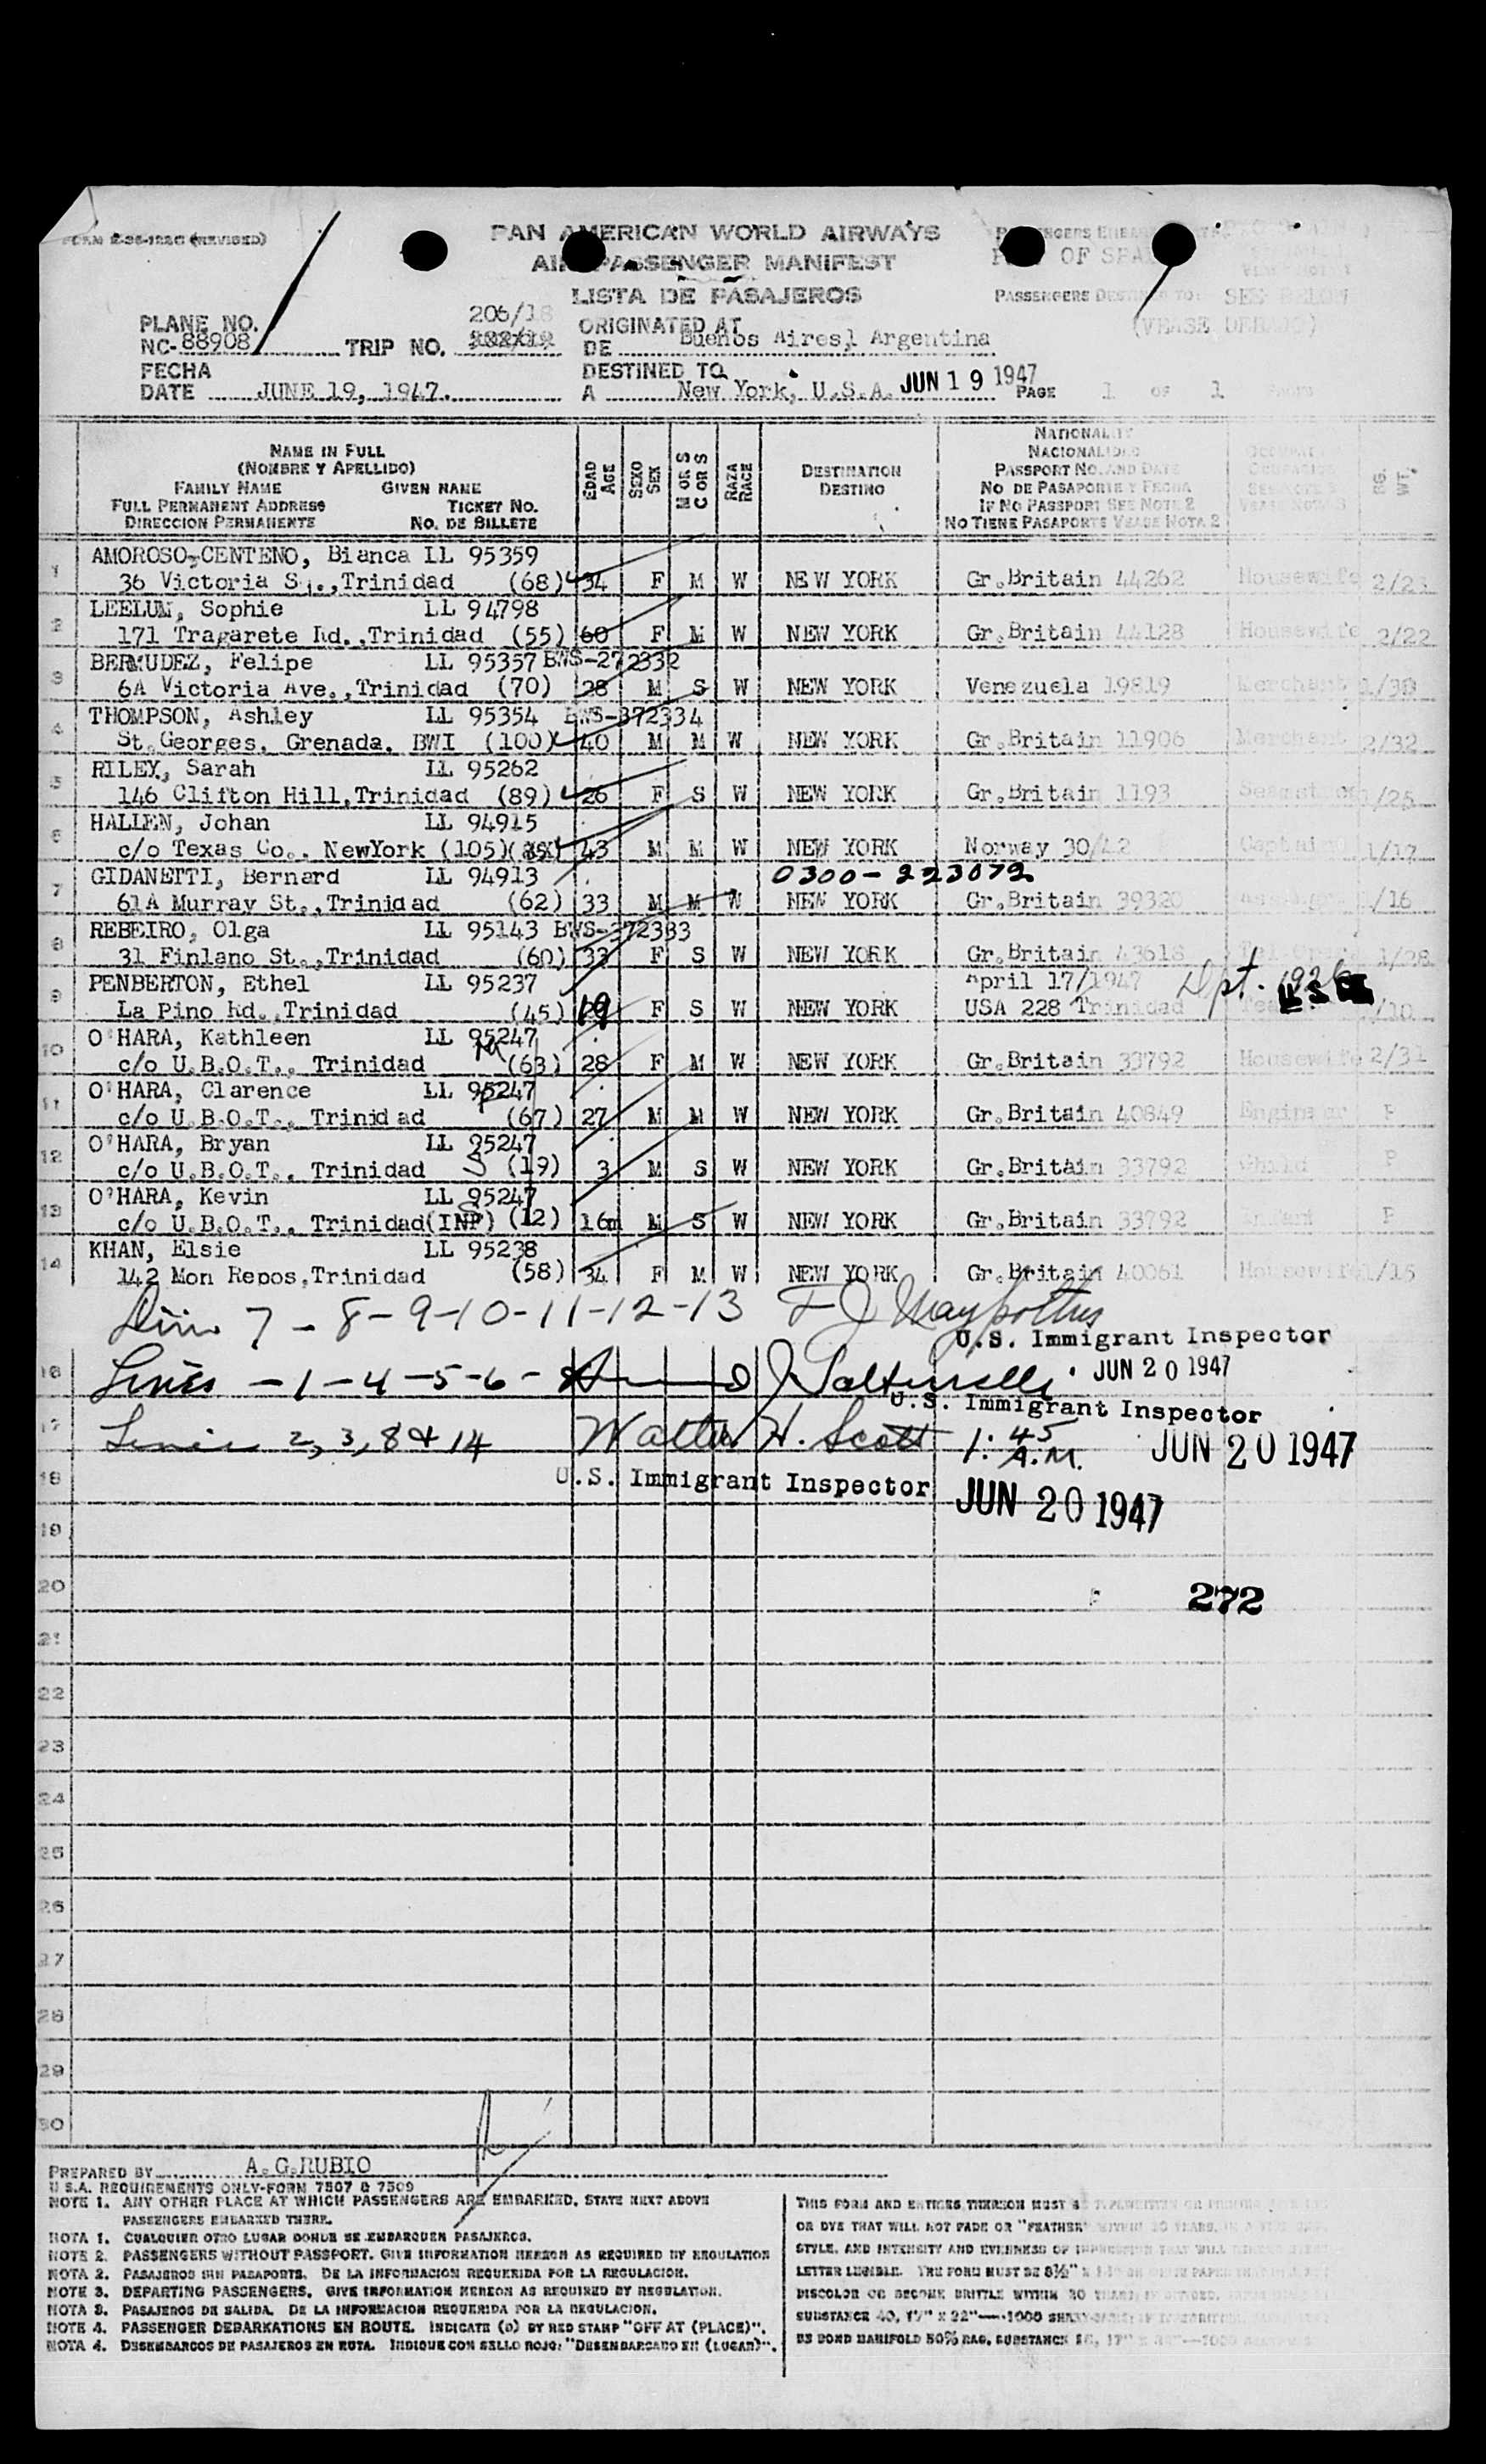 FORM E-36-122C (REVISED)
PAN AMERICAN WORLD AIRWAYS
AIR PASSENGER MANIFEST
LISTA DE PASAJEROS
PASSENGERS DESTINED TO: SEE BELOW
(VEASE DEBAJO)
PLANE NO.
NC-88908
TRIP NO. 206/18
ORIGINATED AT
DE Buenos Aires, Argentina
FECHA
DATE JUNE 19, 1947.
DESTINED TO
A New York, U.S.A. JUN 19 1947
PAGE 1 OF 1
NAME IN FULL
(NOMBRE Y APELLIDO)
FAMILY NAME GIVEN NAME
FULL PERMANENT ADDRESS TICKET NO.
DIRECCION PERMANENTE NO. DE BILLETE
EDAD AGE
SEXO SEX
M OR S C OR S
RAZA RACE
DESTINATION
DESTINO
NATIONALITY
NACIONALIDAD
PASSPORT NO. AND DATE
NO DE PASAPORTE Y FECHA
IF NO PASSPORT SEE NOTE 2
NO TIENE PASAPORTE VEASE NOTA 2
WT.
1 AMOROSO-CENTENO, Bianca LL 95359
36 Victoria Sq.,Trinidad (68) 34 F M W NEW YORK Gr.Britain 44262 Housewife 2/23
2 LEELUM, Sophie LL 94798
171 Tragarete Rd.,Trinidad (55) 60 F M W NEW YORK Gr.Britain 44128 Housewife 2/22
3 BERMUDEZ, Felipe LL 95357 BWS-272332
6A Victoria Ave.,Trinidad (70) 28 M S W NEW YORK Venezuela 19819 Merchant 1/30
4 THOMPSON, Ashley LL 95354 BWS-372334
St.Georges, Grenada, BWI (100) 40 M M W NEW YORK Gr.Britain 11906 Merchant 2/32
5 RILEY, Sarah LL 95262
146 Clifton Hill,Trinidad (89) 26 F S W NEW YORK Gr.Britain 1193 1/25
6 HALLEN, Johan LL 94915
c/o Texas Co., NewYork (105) 43 M M W NEW YORK Norway 30/42 Captain 1/17
7 GIDANETTI, Bernard LL 94913 0300-223072
61A Murray St.,Trinidad (62) 33 M M W NEW YORK Gr.Britain 39320 1/16
8 REBEIRO, Olga LL 95143 BWS-272333
31 Finland St.,Trinidad (60) 33 F S W NEW YORK Gr.Britain 43618 1/28
9 PENBERTON, Ethel LL 95237 April 17/1947 Dpt. 1926
La Pino Rd.,Trinidad (45) 19 F S W NEW YORK USA 228 Trinidad /10
10 O'HARA, Kathleen LL 95247
c/o U.B.O.T., Trinidad (63) 28 F M W NEW YORK Gr.Britain 33792 Housewife 2/31
11 O'HARA, Clarence LL 95247
c/o U.B.O.T., Trinidad (67) 27 M M W NEW YORK Gr.Britain 40849 Engineer P
12 O'HARA, Bryan LL 95247
c/o U.B.O.T., Trinidad (19) 3 M S W NEW YORK Gr.Britain 33792 Child P
13 O'HARA, Kevin LL 95247
c/o U.B.O.T., Trinidad(INF) (12) 16m M S W NEW YORK Gr.Britain 33792 Infant P
14 KHAN, Elsie LL 95238
142 Mon Repos,Trinidad (58) 34 F M W NEW YORK Gr.Britain 40061 Housewife 1/15
7-8-9-10-11-12-13
U.S. Immigrant Inspector
16 Lines -1-4-5-6- JUN 20 1947
U.S. Immigrant Inspector
17 Lines 2, 3, 8 & 14 Walter H. Scott 1:45 A.M. JUN 20 1947
18 U.S. Immigrant Inspector JUN 20 1947
19
20 272
21
22
23
24
25
26
27
28
29
30
PREPARED BY A.G.RUBIO
U S.A. REQUIREMENTS ONLY-FORM 7507 & 7509
NOTE 1. ANY OTHER PLACE AT WHICH PASSENGERS ARE EMBARKED, STATE NEXT ABOVE
PASSENGERS EMBARKED THERE.
NOTA 1. CUALQUIER OTRO LUGAR DONDE SE EMBARQUEN PASAJEROS.
NOTE 2. PASSENGERS WITHOUT PASSPORT. GIVE INFORMATION HEREON AS REQUIRED BY REGULATION
NOTA 2. PASAJEROS SIN PASAPORTE. DE LA INFORMACION REQUERIDA POR LA REGULACION.
NOTE 3. DEPARTING PASSENGERS. GIVE INFORMATION HEREON AS REQUIRED BY REGULATION.
NOTA 3. PASAJEROS DE SALIDA. DE LA INFORMACION REQUERIDA POR LA REGULACION.
NOTE 4. PASSENGER DEBARKATIONS EN ROUTE. INDICATE (D) BY RED STAMP "OFF AT (PLACE)".
NOTA 4. DESEMBARCOS DE PASAJEROS EN RUTA. INDIQUE CON SELLO ROJO: "DESEMBARCADO EN (LUGAR)".
THIS FORM AND ENTRIES THEREON MUST BE TYPEWRITTEN OR
OR DYE THAT WILL NOT FADE OR "FEATHER" WITHIN 20 YEARS,
STYLE, AND INTENSITY AND EVENNESS OF IMPRESSION THAT WILL
LETTER LEGIBLE. THE FORM MUST BE 8½" X
DISCOLOR OR BECOME BRITTLE WITHIN 20 YEARS;
SUBSTANCE 40, 17" X 22"—1000
BE BOND MANIFOLD 50% RAG, SUBSTANCE